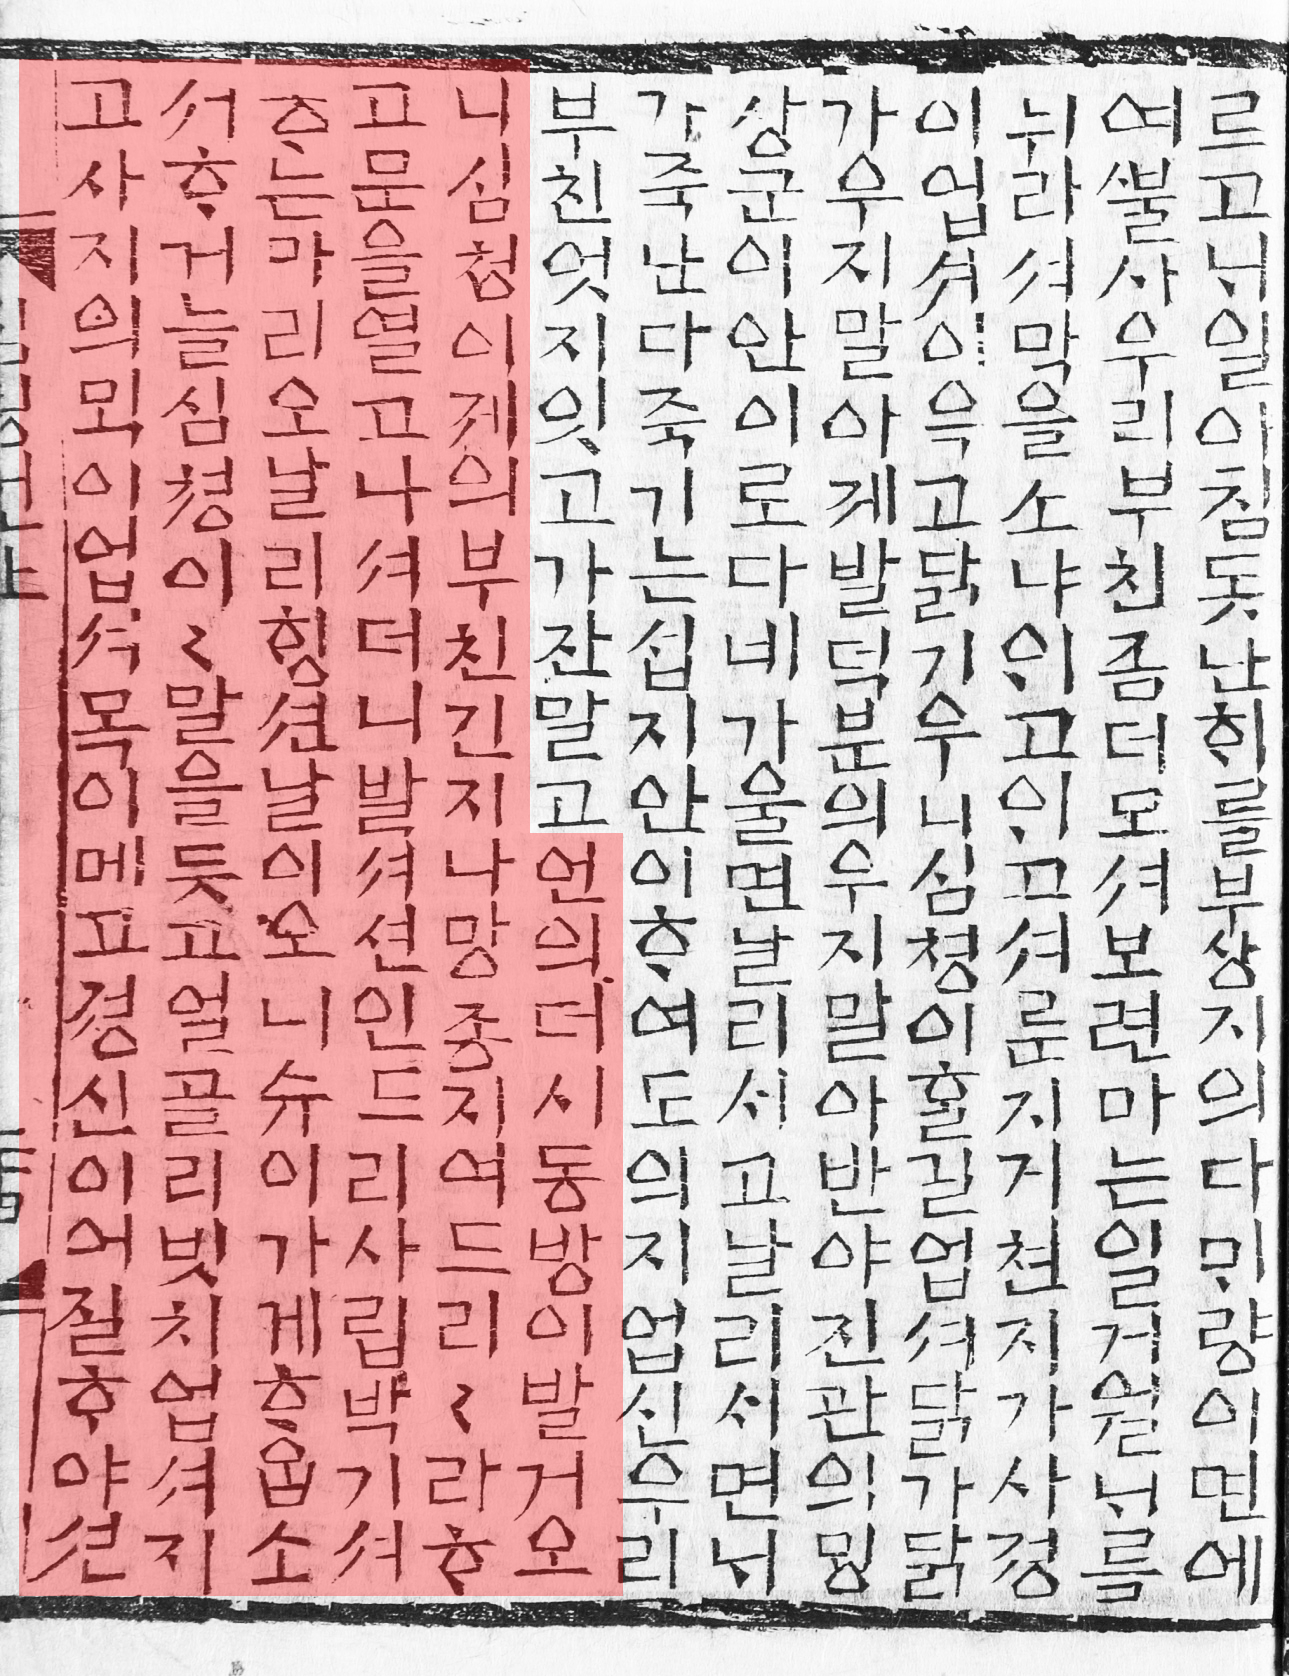 르고ᄂᆡ일아침돗난ᄒᆡ를부상지의다ᄆᆡ량이면에
여ᄲᅮᆯ사우리부친좀더모셔보련마는일거월ᄂᆡ름
뉘라셔막을소냐ᄋᆡ고ᄋᆡ고셔룬지거쳔지가사졍
이업셔이윽고닭기우니심쳥이ᄒᆞᆯ길업셔닭가닭
가우지말아계발덕분의우지말아반야진관의ᄆᆡᆼ
상군이안이로다네가울면날리ᄉᆡ고날리ᄉᆡ면ᄂᆡ
가죽난다죽기는셥지안이ᄒᆞ여도의지업신우리
부친엇지잇고가잔말고언의더시동방이발거오
니심쳥이졔의부친긴지나망종지여드리〻라ᄒᆞ
고문을열고나셔더니발셔션인드리사립박기셔
ᄒᆞ는마리오날리ᄒᆡᆼ션날이오니슈이가게ᄒᆞ옵소
셔ᄒᆞ거늘심쳥이〻말을듯고얼골리빗치업셔지
고사지의ᄆᆡᆨ이업셔목이메고졍신이어질ᄒᆞ야션